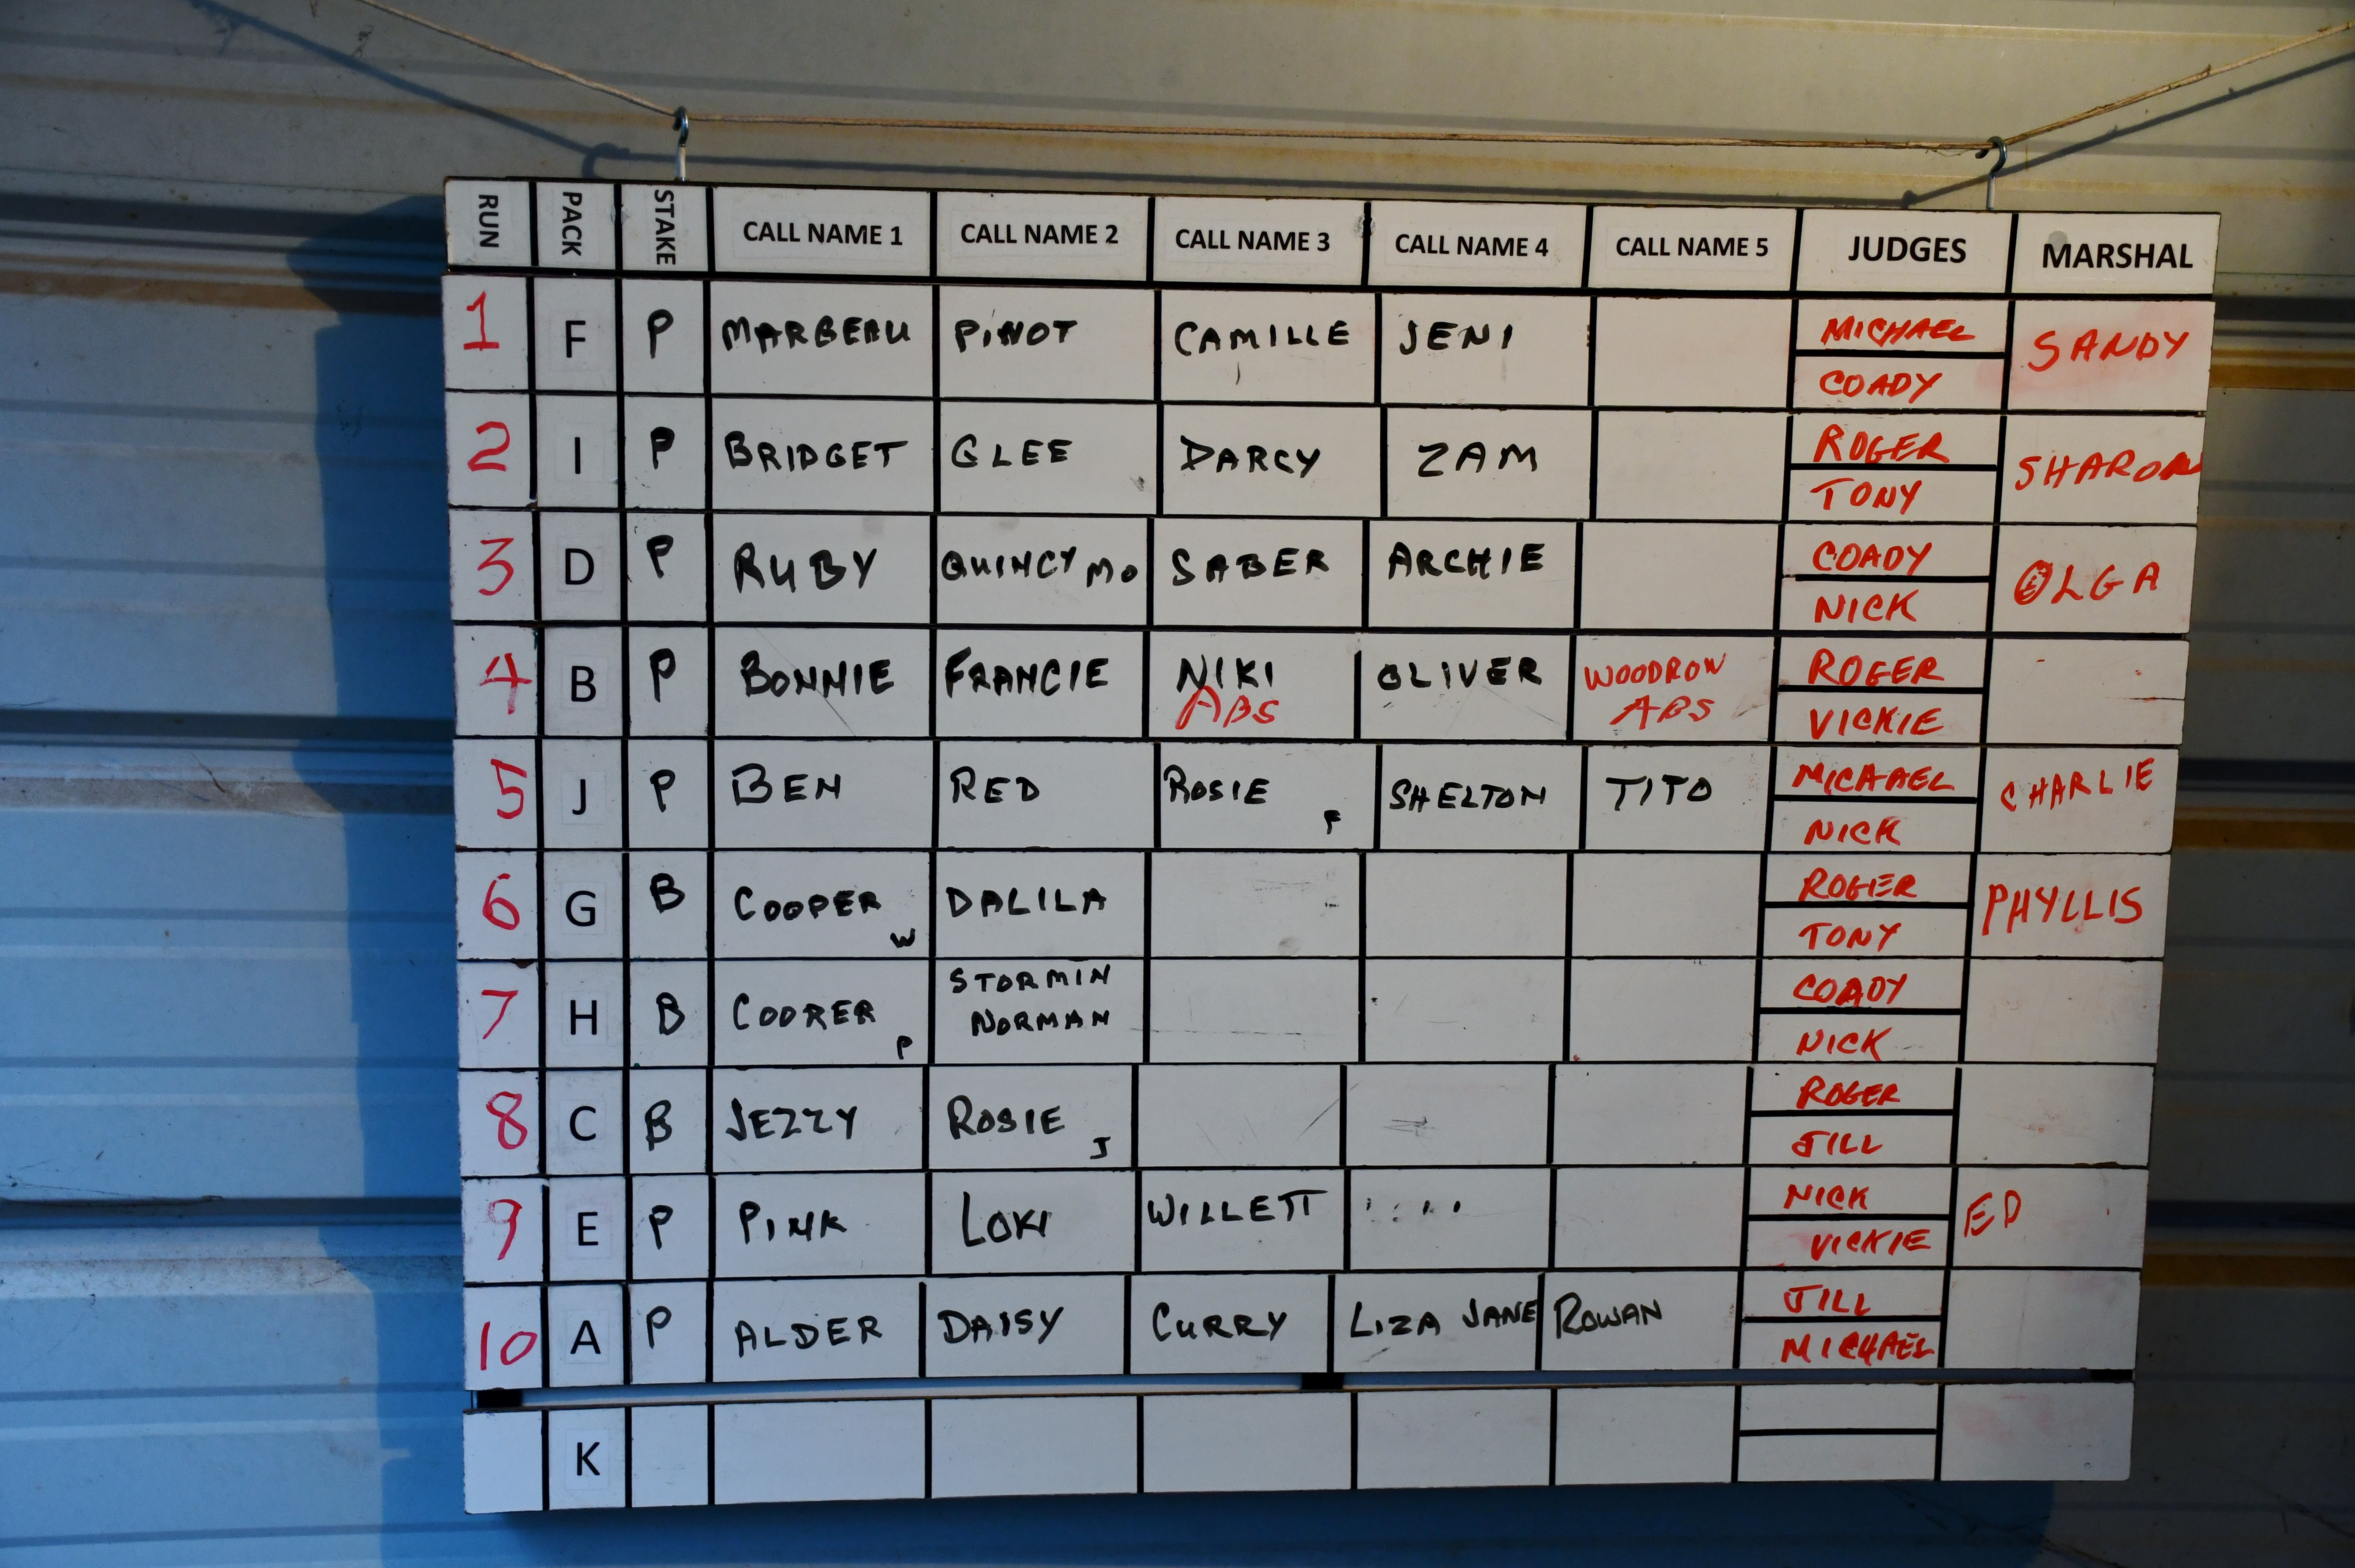 RUN PACK STAKE CALL NAME 1 CALL NAME 2 CALL NAME 3 CALL NAME 4 CALL NAME 5 JUDGES MARSHAL
1 F P MARBEAU PINOT CAMILLE JENI MICHAEL SANDY
COADY
2 I P BRIDGET GLEE DARCY ZAM ROGER SHARON
TONY
3 D P RUBY QUINCY MO SABER ARCHIE COADY OLGA
NICK
4 B P BONNIE FRANCIE NIKI OLIVER WOODROW ROGER
ABS ABS VICKIE
5 J P BEN RED ROSIE F SHELTON TITO MICHAEL CHARLIE
NICK
6 G B COOPER W DALILA ROGER PHYLLIS
TONY
7 H B COOPER P STORMIN COADY
NORMAN NICK
8 C B JEZZY ROSIE J ROGER
JILL
9 E P PINK LOKI WILLETT NICK ED
VICKIE
10 A P ALDER DAISY CURRY LIZA JANE ROWAN JILL
MICHAEL
K